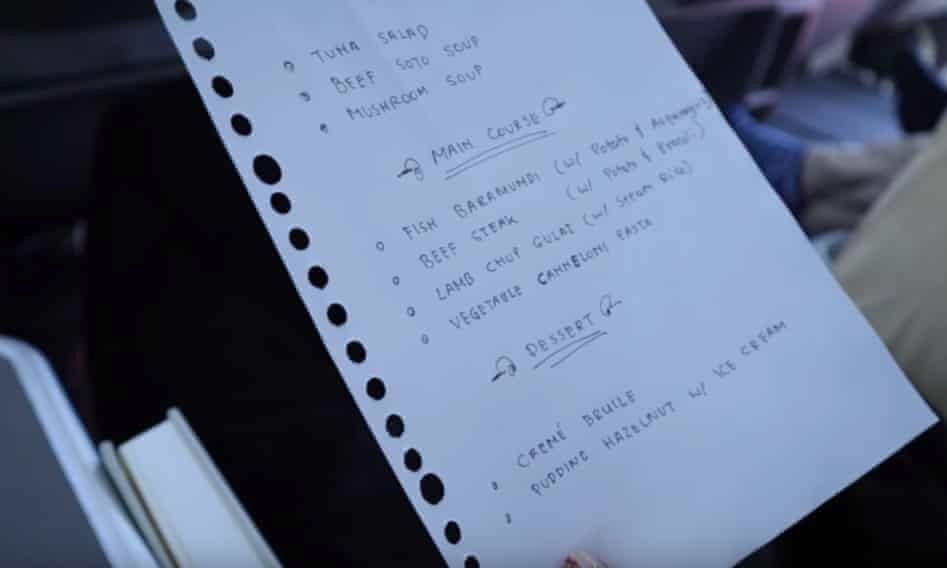 TUNA SALAD
BEEF SOTO SOUP
MUSHROOM SOUP
MAIN COURSE
FISH BARAMUNDI (w/ Potato & Asparagus)
BEEF STEAK (w/ Potato & Broccoli)
LAMB CHOP GULAI (w/ Steam Rice)
VEGETABLE CANNELONI PASTA
DESSERT
CREMÉ BRULE
PUDDING HAZELNUT W/ ICE CREAM